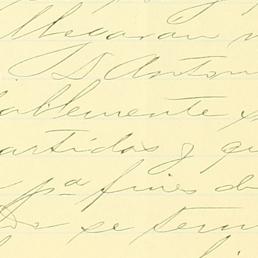 Llegaron
D. Anton
ablemente
artidos y qu
pª fines d
se term